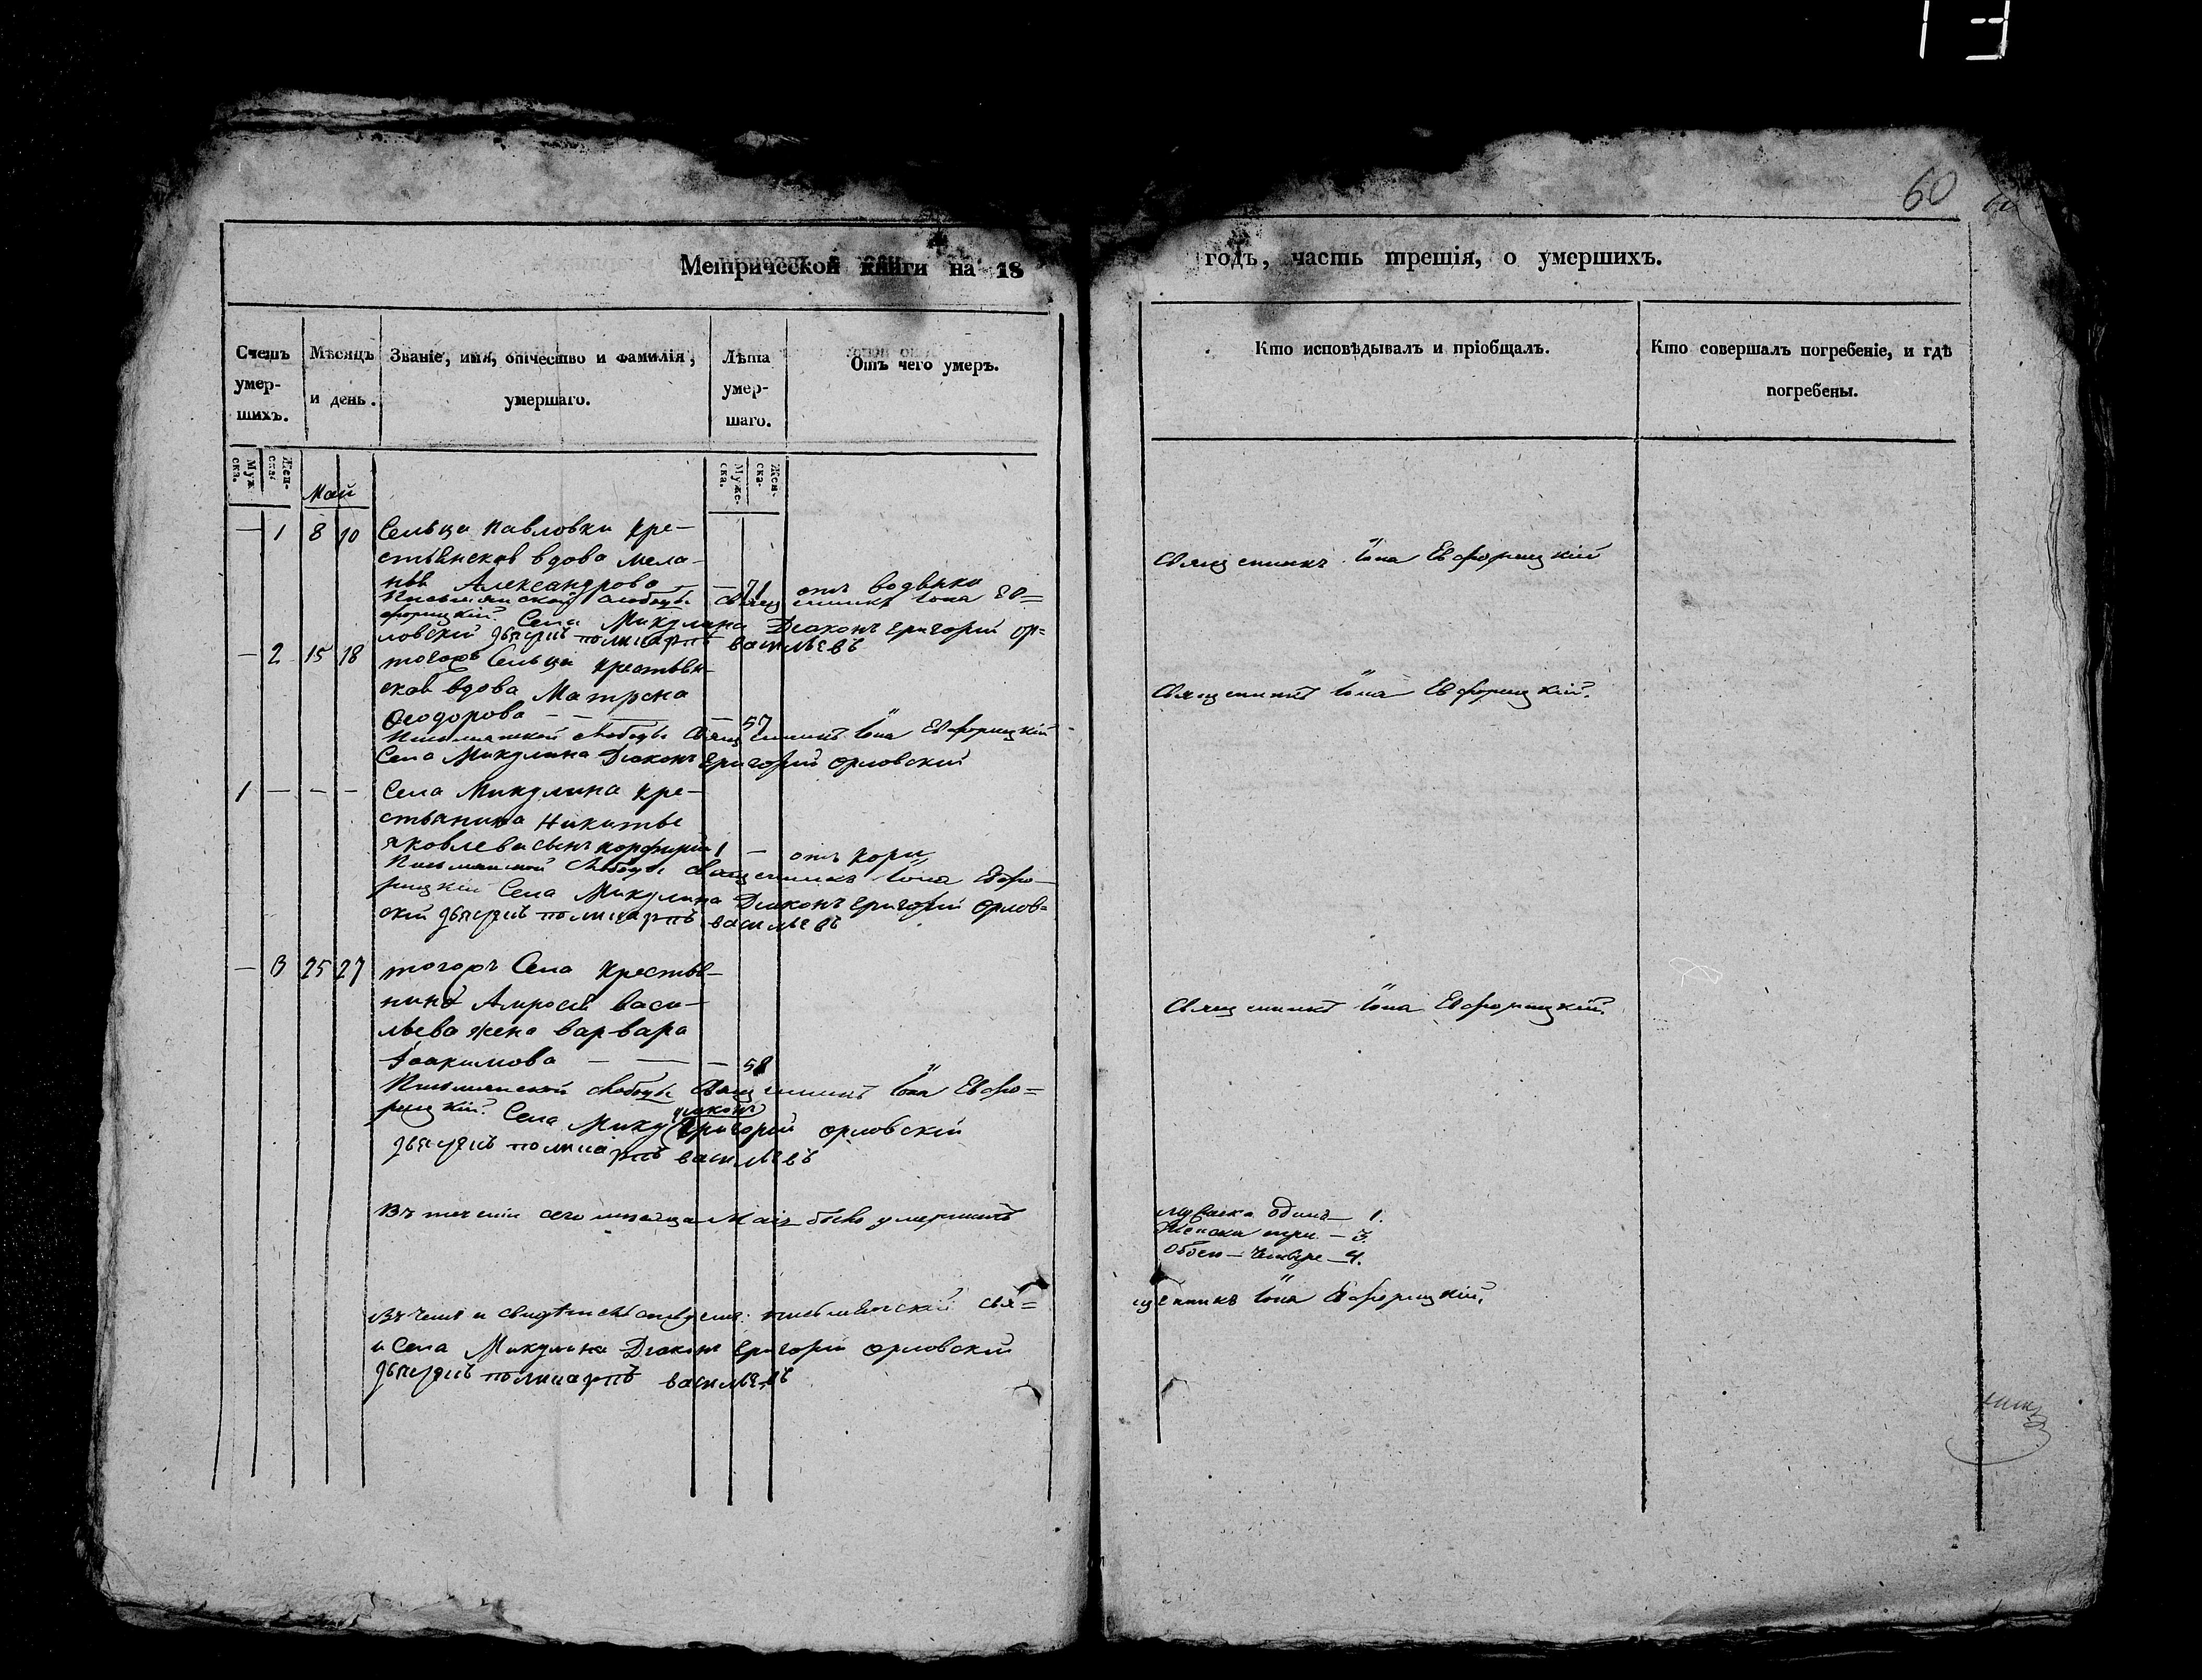 13
60
Метрической книги на 18
годъ, часть третія, о умершихъ.
Счетъ умер-шихъ.
Мѣсяцъ и день.
Званіе, имя, отчество и фамилія, умершаго.
Лѣта умер-шаго.
Отъ чего умеръ.
Кто исповѣдывалъ и пріобщалъ.
Кто совершалъ погребеніе, и гдѣ погребены.
Муж-ска.
Жен-ска.
Муже-ска.
Жен-ска.
Май
— 1 8 10 Сельца Павловки кре-
стьянская вдова Мела-
нья Александрова — 71 отъ водянки
Священникъ Іона Евфорицкій
слободы Священникъ Іона Ев=
форицкій. Села Микулина Діаконъ Григорій Ор=
ловскій дьячокъ Поликарпъ Васильевъ
— 2 15 18 тогожъ Сельца крестьян-
ская вдова Матрона
Ѳеодорова — — — 57
Священникъ Іона Евфорицкій.
слободы Священникъ Іона Евфорицкій
Села Микулина Діаконъ Григорій Орловскій
1 — — — Села Микулина кре-
стьянина Никиты
Яковлева сынъ Порфирій 1 — отъ кори
слободы Священникъ Іона Евфо-
рицкій Села Микулина Діаконъ Григорій Орлов=
скій дьячокъ Поликарпъ Васильевъ
— 3 25 27 тогожъ Села крестья-
нина Амросія Васи-
льева жена Варвара
Іоакимова — — — 58
Священникъ Іона Евфорицкій.
слободы Священникъ Іона Евфо=
рицкій. Села Мику діаконъ Григорій Орловскій
дьячокъ Поликарпъ Васильевъ
Въ теченіи сего мѣсяца Маія было умершихъ
мужеска одинъ — 1.
Женска три — 3.
Обоего — четыре — 4.
Въ чемъ и свидѣтельствуемъ: свя=
щенникъ Іона Евфорицкій.
и Села Микулина Діаконъ Григорій Орловскій
дьячокъ Поликарпъ Васильевъ